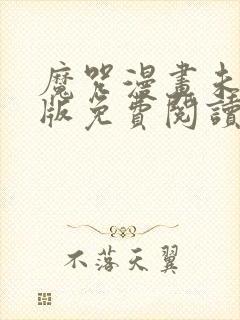 魔咒漫畫未
版免費閱讀
不落天翼